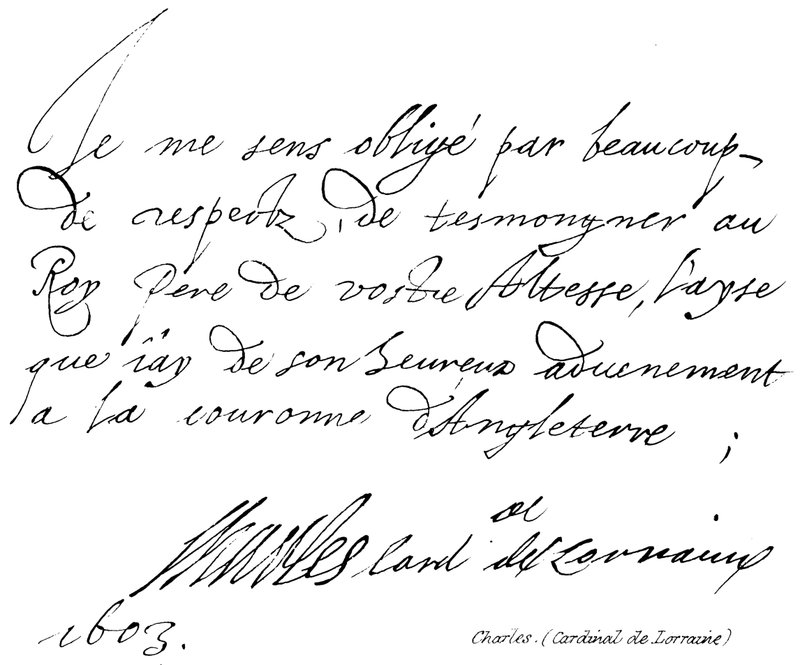 Je me sens obligé par beaucoup
de respectz, de tesmongner au
Roy Pere de vostre Altesse, l'ayse
que i'ay de son heureux aduenement
a la couronne d'Angleterre ;
Charles Card de Lorraine
1603.
Charles. (Cardinal de Lorraine)